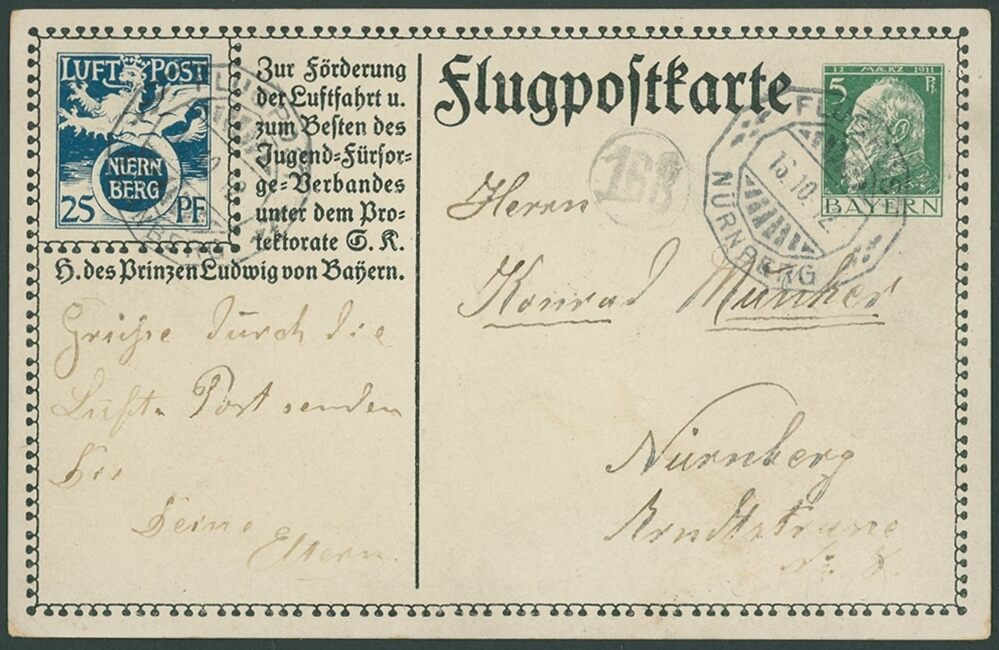 LUFT POST
NUERN
BERG
25 PF
Zur Förderung
der Luftfahrt u.
zum Besten des
Jugend-Fürsor-
ge-Verbandes
unter dem Pro-
tektorate S. K.
H. des Prinzen Ludwig von Bayern.
Grüße durch die
Luft-Post senden
Dir
Deine
Eltern.
Flugpostkarte
12 MÄRZ 1911
5 Pf
BAYERN
NÜRNBERG
Herrn
Konrad Munker
Nürnberg
Arndtstrasse
No 8.